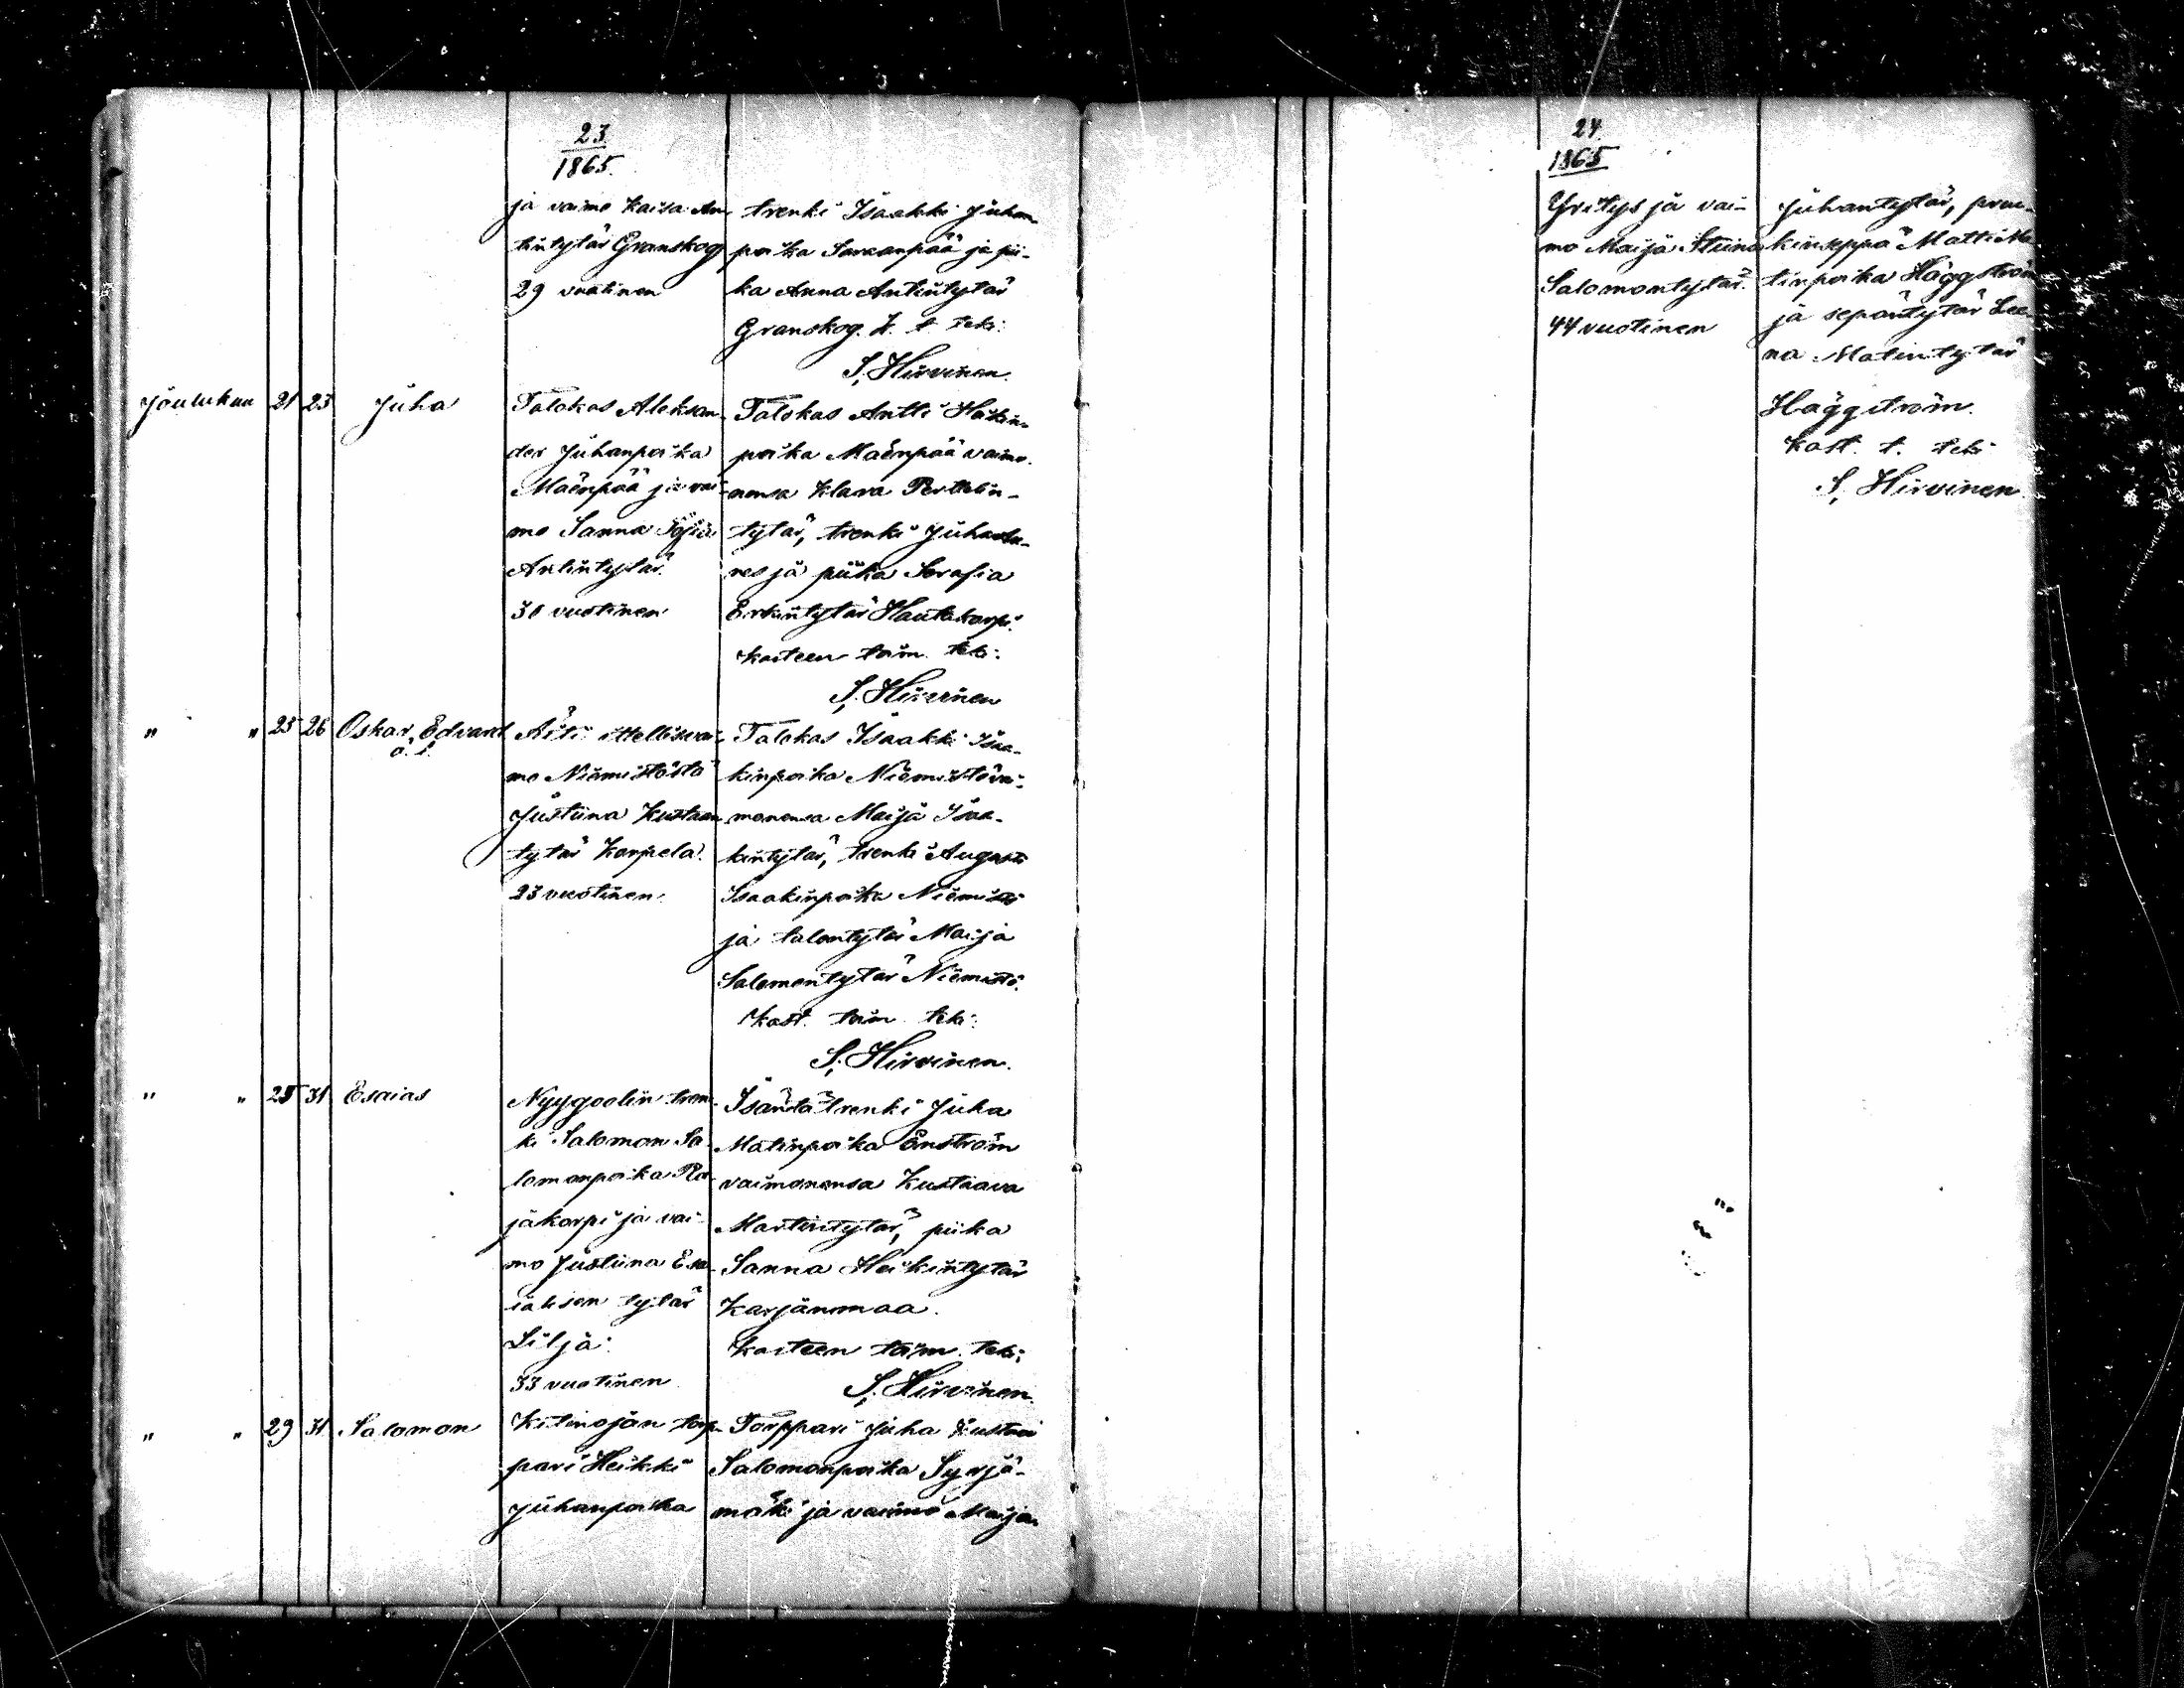 23
1865.
ja vaimo Kaisa An-
tintytär Granskog
29 vuotinen
trenki Isaakki Juhan
poika Savaanpää ja pii-
ka Anna Antintytär
Granskog. k. t. teki:
S. Hirvinen.
Joulukuu 21 23 Juha
Talokas Aleksan-
der Juhanpoika
Mäenpää ja vai-
mo Sanna Sofia
Antintytär.
30 vuotinen
Talokas Antti Heikin-
poika Mäenpää vaimo-
nensa Klara Perttelin-
tytär, trenki Juha
ja piika Serafia
Erkintytär Hautakorpi.
Kasteen toim. teki:
S. Hirvinen
" " 25 26 Oskar, Edvard
ä. l.
Äiti itsellisvai-
mo Niemistöstä
Justiina Kustaan
tytär Karpela.
23 vuotinen.
Talokas Isaakki Isaa-
kinpoika Niemistö vai-
monensa Maija Isaa-
kintytär, trenki August
Isaakinpoika Niemistö
ja talontytär Maija
Salomontytär Niemistö.
Kast. toim. teki:
S. Hirvinen.
" " 25 31 Esaias
Nyygoolin tren-
ki Salomon Sa-
lomonpoika Ra-
jakorpi ja vai-
mo Justiina Esa-
iaksen tytär
Lilja.
33 vuotinen
Isäntä trenki Juha
Matinpoika Enström
vaimonensa Kustaava
Martintytär, piika
Sanna Heikintytär
Karjanmaa.
Kasteen toim. teki:
S. Hirvinen.
" " 29 31 Salomon
Kitinojan torp-
pari Heikki
Juhanpoika
Torppari Juha Kustaa
Salomonpoika Syrjä-
mäki ja vaimo Maija
24
1865
Yritys ja vai-
mo Maija Stiina
Salomontytär.
44 vuotinen
Juhantytär, pruu-
kinseppä Matti Ma-
tinpoika Häggström
ja sepäntytär Lee-
na Matintytär
Häggström.
Kast. t. teki
S. Hirvinen